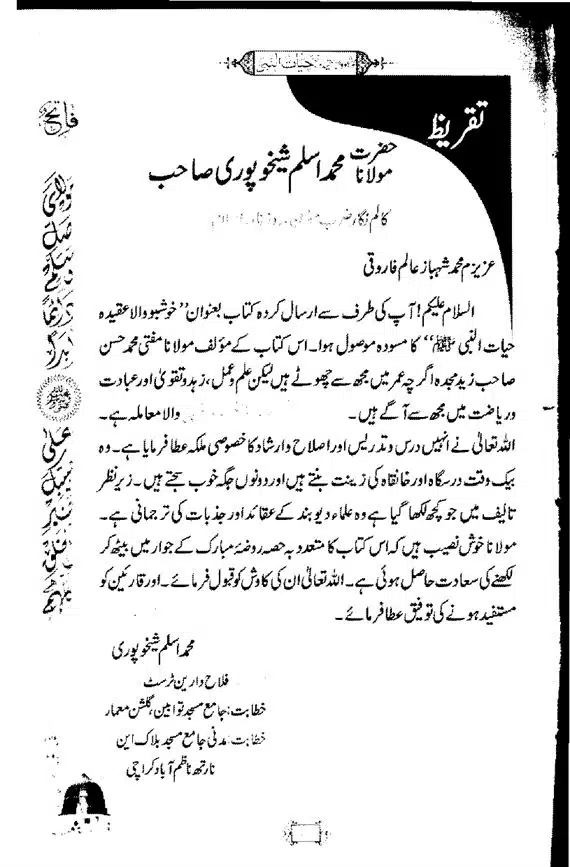 حیات النبی
تقریظ
حضرت مولانا محمد اسلم شیخوپوری صاحب
کالم نگار ضرب مؤمن
عزیزم محمد شہباز عالم فاروقی
السلام علیکم! آپ کی طرف سے ارسال کردہ کتاب بعنوان ”خوشبو والا عقیدہ
حیات النبی ﷺ“ کا مسودہ موصول ہوا۔ اس کتاب کے مؤلف مولانا مفتی محمد حسن
صاحب زید مجدہ اگرچہ عمر میں مجھ سے چھوٹے ہیں لیکن علم و عمل، زہد و تقویٰ اور عبادت
و ریاضت میں مجھ سے آگے ہیں۔ والا معاملہ ہے۔
اللہ تعالیٰ نے انہیں درس و تدریس اور اصلاح و ارشاد کا خصوصی ملکہ عطا فرمایا ہے۔ وہ
بیک وقت درسگاہ اور خانقاہ کی زینت بنتے ہیں اور دونوں جگہ خوب سجتے ہیں۔ زیر نظر
تالیف میں جو کچھ لکھا گیا ہے وہ علماء دیوبند کے عقائد اور جذبات کی ترجمانی ہے۔
مولانا خوش نصیب ہیں کہ اس کتاب کا معتدبہ حصہ روضۂ مبارک کے جوار میں بیٹھ کر
لکھنے کی سعادت حاصل ہوئی ہے۔ اللہ تعالیٰ ان کی کاوش کو قبول فرمائے۔ اور قارئین کو
مستفید ہونے کی توفیق عطا فرمائے۔
محمد اسلم شیخوپوری
فلاح دارین ٹرسٹ
خطابت: جامع مسجد توابین، گلشن معمار
خطابت: مدنی جامع مسجد بلاک این
نارتھ ناظم آباد کراچی
فاتح
مولای صل وسلم دائما ابدا
علی حبیبک خیر الخلق کلهم